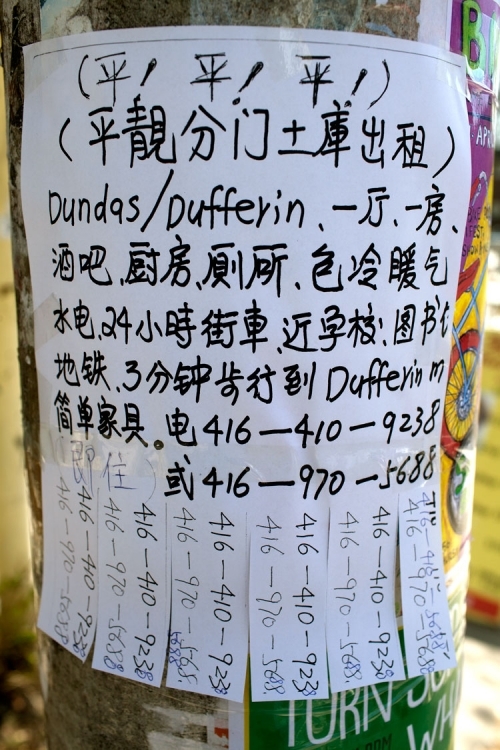 (平! 平! 平!)
(平靚分门土庫出租)
Dundas/Dufferin、一厅、一房、
酒吧、厨房、厠所、包冷暖气
水电、24小時街車、近学校、图书
地铁、3分钟步行到 Dufferin m
简单家具。电416—410—9238
(即住) 或416—970—5688
416—970—5688
416—410—9238
416—970—5688
416—410—9238
416—970—568
416—410—923
416—970—5688
416—410—9238
416—970—5688
416—410—9238
416—970—5688
TURN
WH